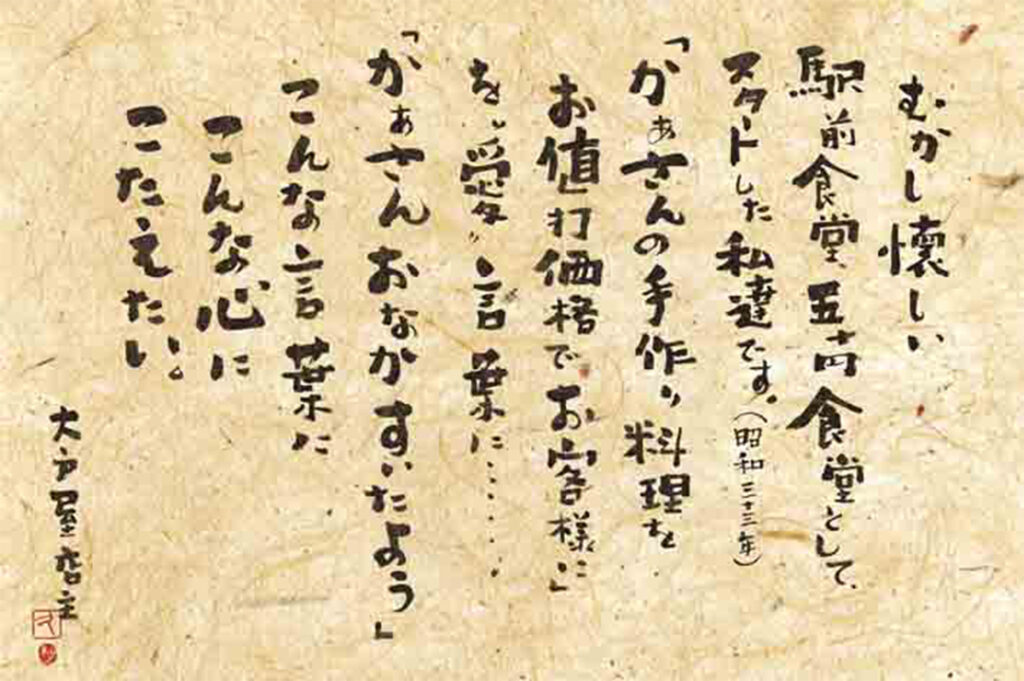 むかし懐しい
駅前食堂、五十円食堂として、
スタートした私達です。(昭和三十三年)
「かぁさんの手作り料理を
お値打価格でお客様に」
を〝愛〟言葉に………
「かぁさんおなかすいたよう」
こんな言葉に
こんな心に
こたえたい。
大戸屋店主